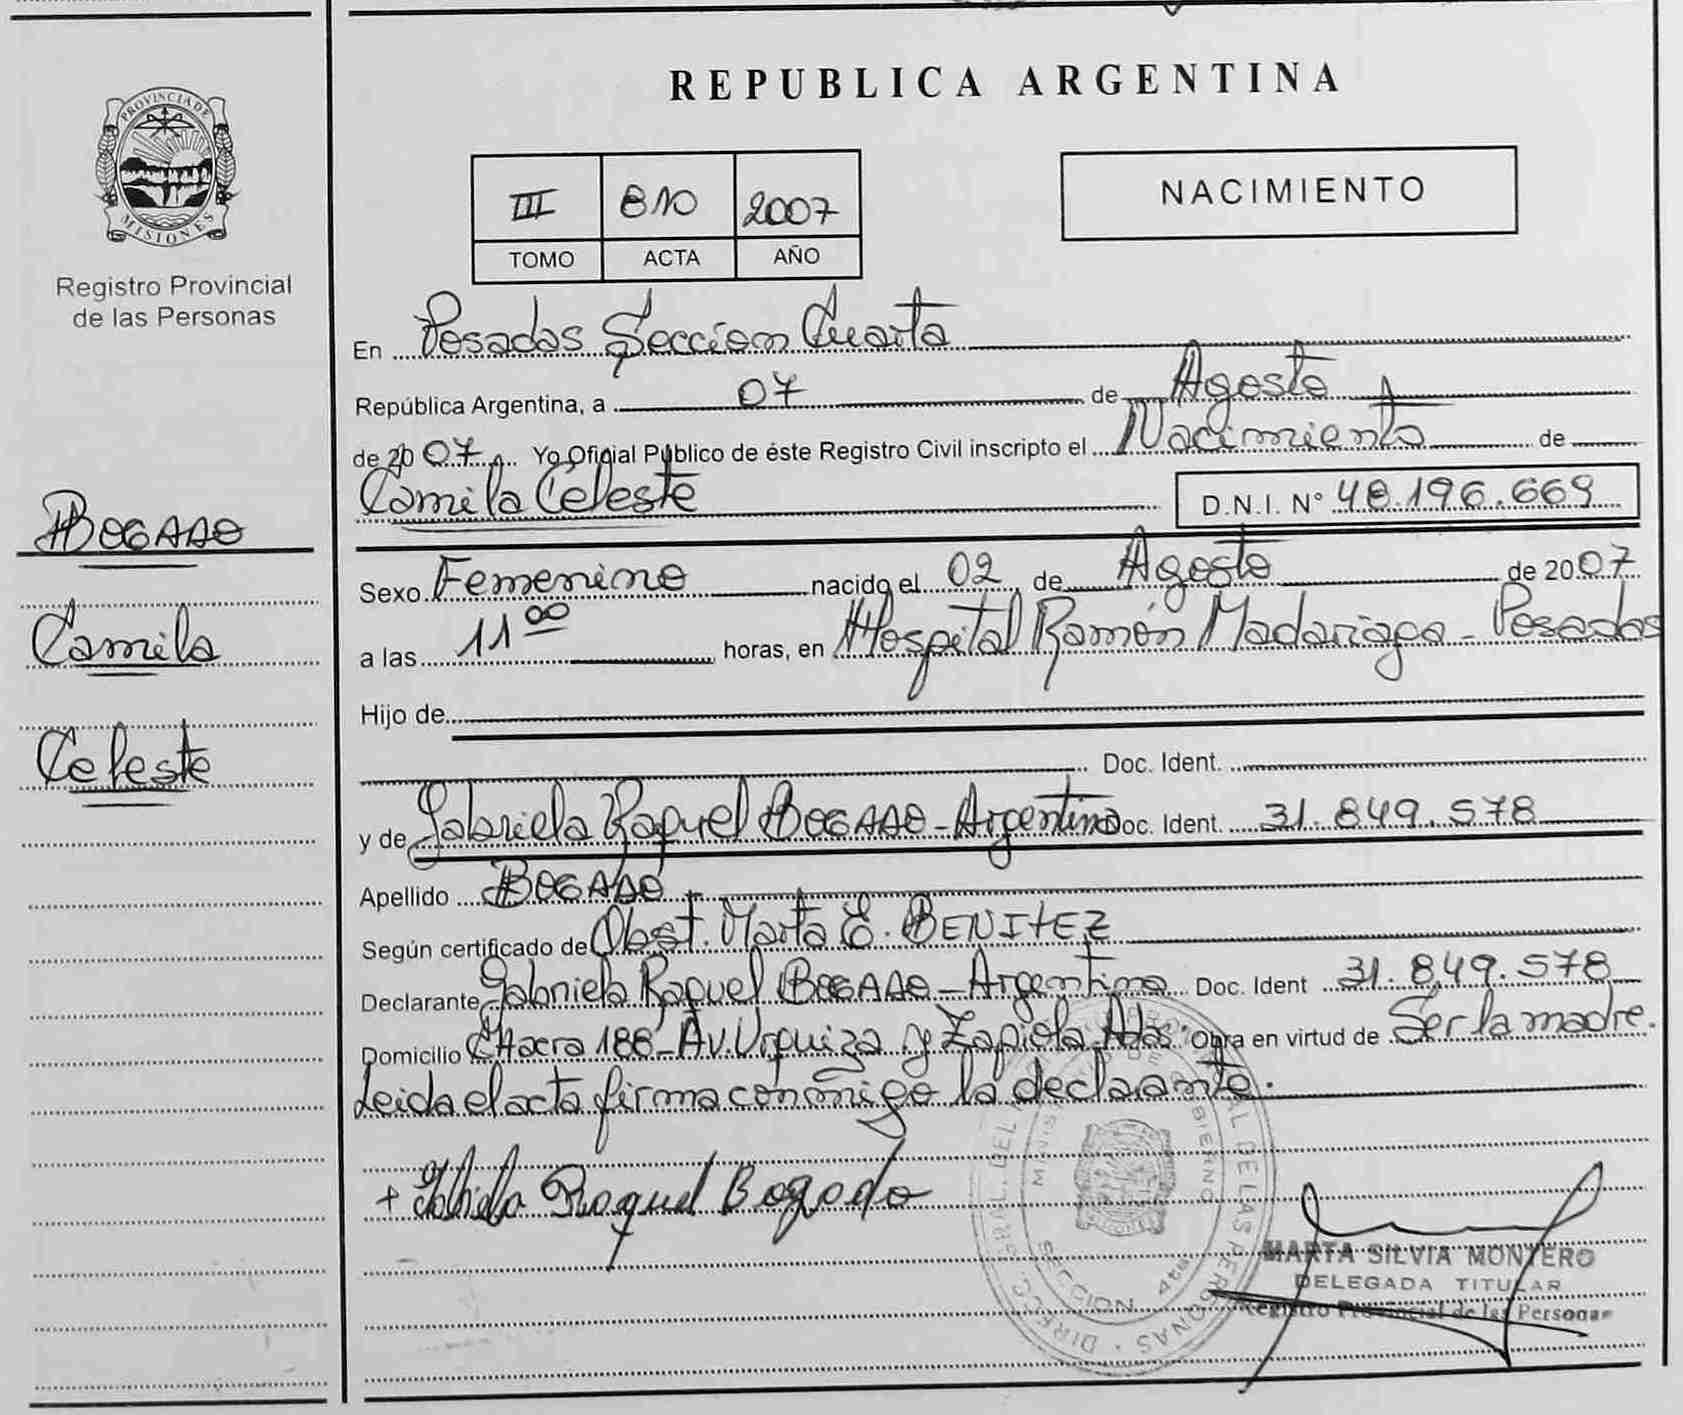 PROVINCIA DE
MISIONES
Registro Provincial
de las Personas
BOGADO
Camila
Celeste
REPUBLICA ARGENTINA
III 810 2007
TOMO ACTA AÑO
NACIMIENTO
En Posadas Sección Cuarta
República Argentina, a 07 de Agosto
de 2007. Yo Oficial Público de éste Registro Civil inscripto el Nacimiento de
Camila Celeste D.N.I. Nº 48.196.669
Sexo Femenino nacido el 02 de Agosto de 2007
a las 11 00 horas, en Hospital Ramón Madariaga - Posadas
Hijo de
Doc. Ident.
y de Gabriela Raquel BOGADO - Argentina Doc. Ident. 31.849.578
Apellido BOGADO
Según certificado de Obst. Marta E. BENITEZ
Declarante Gabriela Raquel BOGADO - Argentina Doc. Ident 31.849.578
Domicilio CHacra 188 - Av. Urquiza y Zapiola Pdas. Obra en virtud de Ser la madre.
Leida el acta firma conmigo la declarante.
+ Gabriela Raquel Bogado
SECCION 4ta
MARTA SILVIA MONTERO
DELEGADA TITULAR
Registro Provincial de las Personas